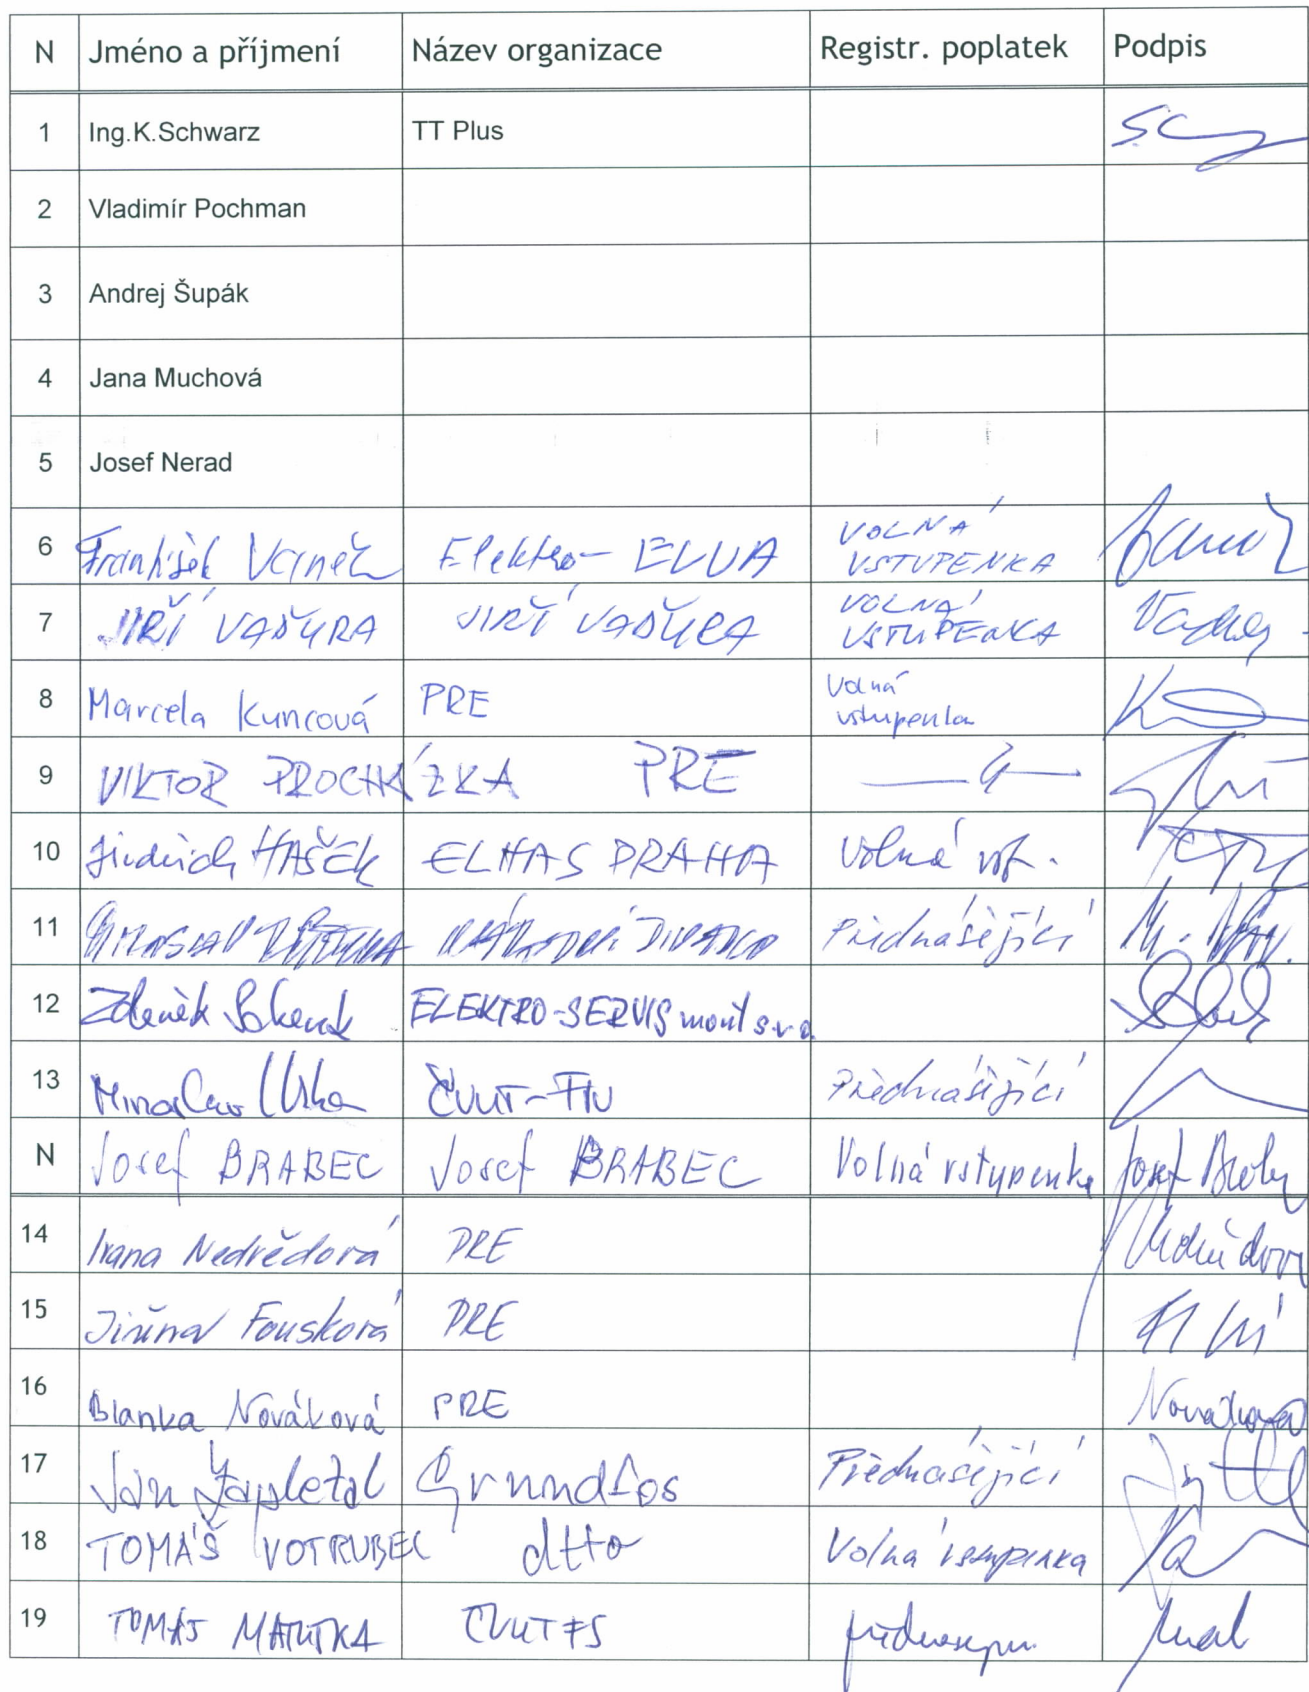 N Jméno a příjmení Název organizace Registr. poplatek Podpis
1 Ing.K.Schwarz TT Plus
2 Vladimír Pochman
3 Andrej Šupák
4 Jana Muchová
5 Josef Nerad
6 František Elektro- VOLNÁ
VSTUPENKA
7 JIŘÍ VAŠURA JIŘÍ VAŠURA VOLNÁ
VSTUPENKA
8 Marcela Kuncová PRE Volná
vstupenka
9 VIKTOR PROCHÁZKA PRE
10 Jindřich HAŠEK ELHAS PRAHA Volná vst.
11 NÁRODNÍ DIVADLO Přednášející
12 Zdeněk ELEKTRO-SERVIS mont s.r.o.
13 Miroslav ČVUT- Přednášející
N Josef BRABEC Josef BRABEC Volná vstupenka
14 Ivana Nedvědová PRE
15 Jiřina Fousková PRE
16 Blanka Nováková PRE Nováková
17 Jan Zapletal Grundfos Přednášející
18 TOMÁŠ VOTRUBEC dtto Volná vstupenka
19 TOMÁŠ MATUŠKA ČVUT FS